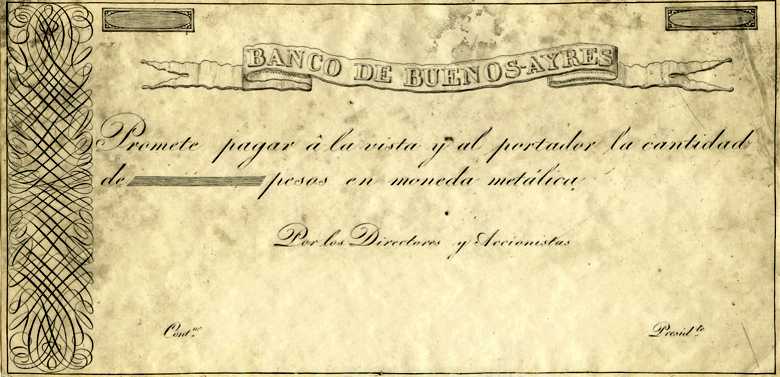 BANCO DE BUENOS-AYRES
Promete pagar â la vista y al portador la cantidad
de pesos en moneda metálica,
Por los Directores y Accionistas
Cont.ᵒʳ Presid.ᵗᵉ